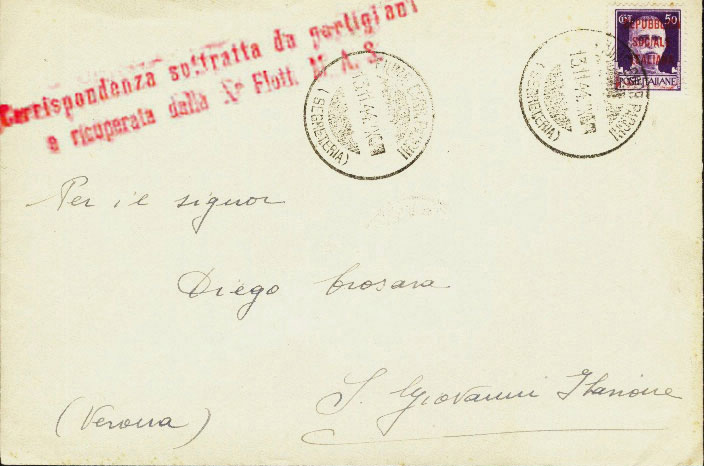 Corrispondenza sottratta da partigiani
e ricuperata dalla Xª Flott. M. A. S.
CT. 50
REPUBBLICA
SOCIALE
ITALIANA
POSTE ITALIANE
13.11.44
(SEGRETERIA)
13.11.44
(SEGRETERIA)
Per il signor
Diego Crosara
S. Giovanni Ilarione
(Verona)